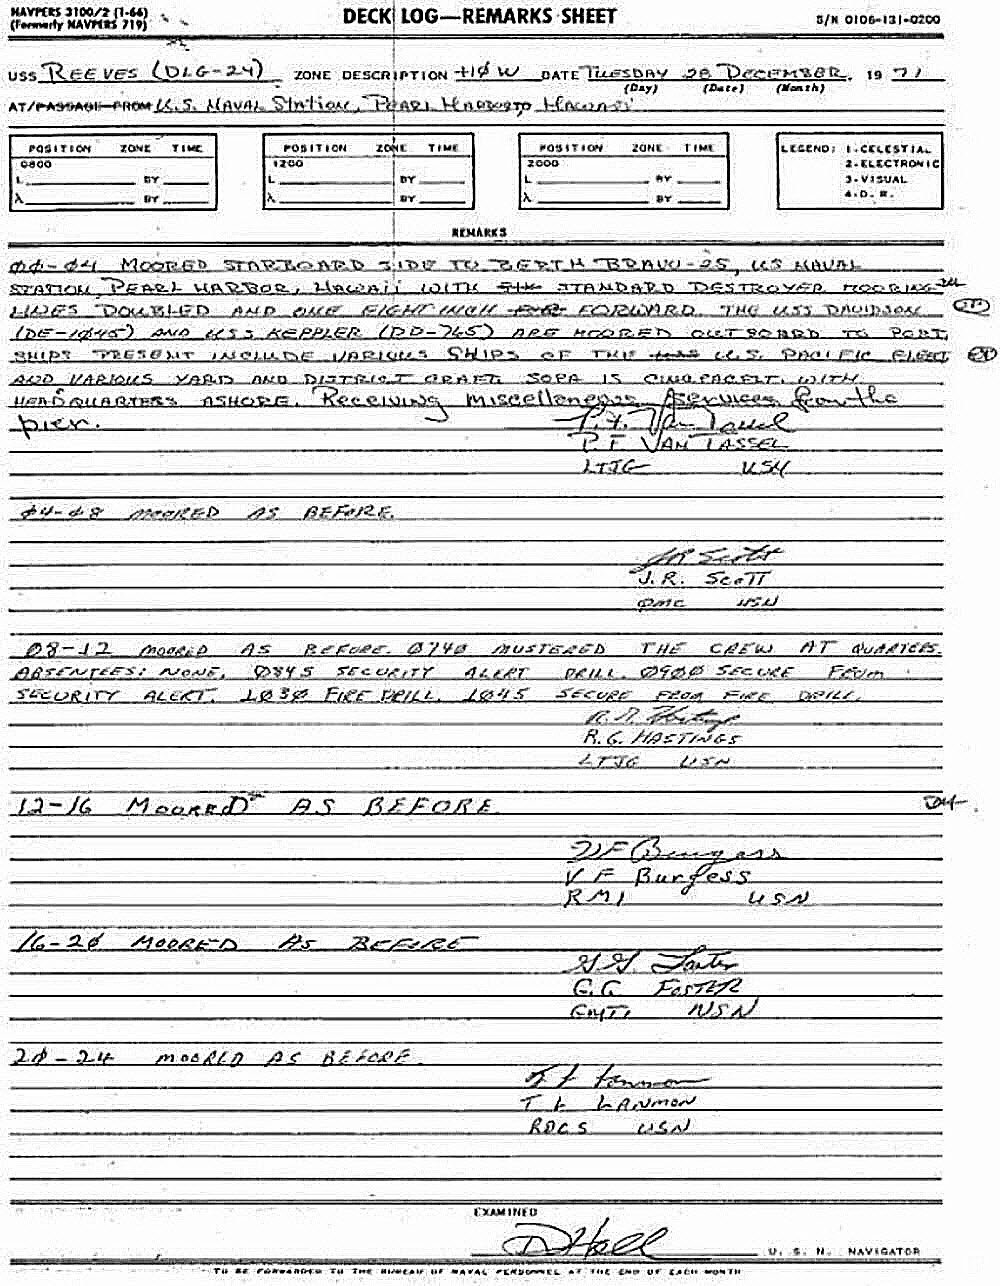 NAVPERS 3100/2 (1-66)
(Formerly NAVPERS 719)
DECK LOG—REMARKS SHEET
S/N 0106-131-0200
USS REEVES (DLG-24) ZONE DESCRIPTION +1ØW DATE TUESDAY 28 DECEMBER, 1971
(Day) (Date) (Month)
AT/PASSAGE FROM U.S. NAVAL STATION, PEARL HARBOR TO HAWAII
POSITION ZONE TIME
0800
L BY
λ BY
POSITION ZONE TIME
1200
L BY
λ BY
POSITION ZONE TIME
2000
L BY
λ BY
LEGEND: 1-CELESTIAL
2-ELECTRONIC
3-VISUAL
4-D. R.
REMARKS
ØØ-Ø4 MOORED STARBOARD SIDE TO BERTH BRAVO-25, US NAVAL
STATION, PEARL HARBOR, HAWAII WITH STANDARD DESTROYER MOORING
LINES DOUBLED AND ONE EIGHT INCH FORWARD. THE USS DAVIDSON
(DE-1Ø45) AND USS KEPPLER (DD-765) ARE MOORED OUTBOARD TO PORT.
SHIPS PRESENT INCLUDE VARIOUS SHIPS OF THE U.S. PACIFIC FLEET
AND VARIOUS YARD AND DISTRICT CRAFT. SOPA IS CINCPACFLT. WITH
HEADQUARTERS ASHORE. Receiving miscellaneous services from the
pier. P.F. Van Tassel
P.F VAN TASSEL
LTJG USN
Ø4-Ø8 MOORED AS BEFORE.
JR Scott
J.R. SCOTT
QMC USN
08-12 MOORED AS BEFORE. Ø74Ø MUSTERED THE CREW AT QUARTERS.
ABSENTEES: NONE. Ø845 SECURITY ALERT DRILL. Ø9ØØ SECURE FROM
SECURITY ALERT. 1Ø3Ø FIRE DRILL. 1Ø45 SECURE FROM FIRE DRILL.
R. G. Hastings
R.G. HASTINGS
LTJG USN
12-16 MOORED AS BEFORE.
VF Burgess
V F Burgess
RM1 USN
16-2Ø MOORED AS BEFORE
G.G. Foster
G.G. FOSTER
GMT1 USN
2Ø-24 MOORED AS BEFORE.
T L Lanmon
T L LANMON
RDCS USN
EXAMINED
D Hall
U. S. N. NAVIGATOR
TO BE FORWARDED TO THE BUREAU OF NAVAL PERSONNEL AT THE END OF EACH MONTH